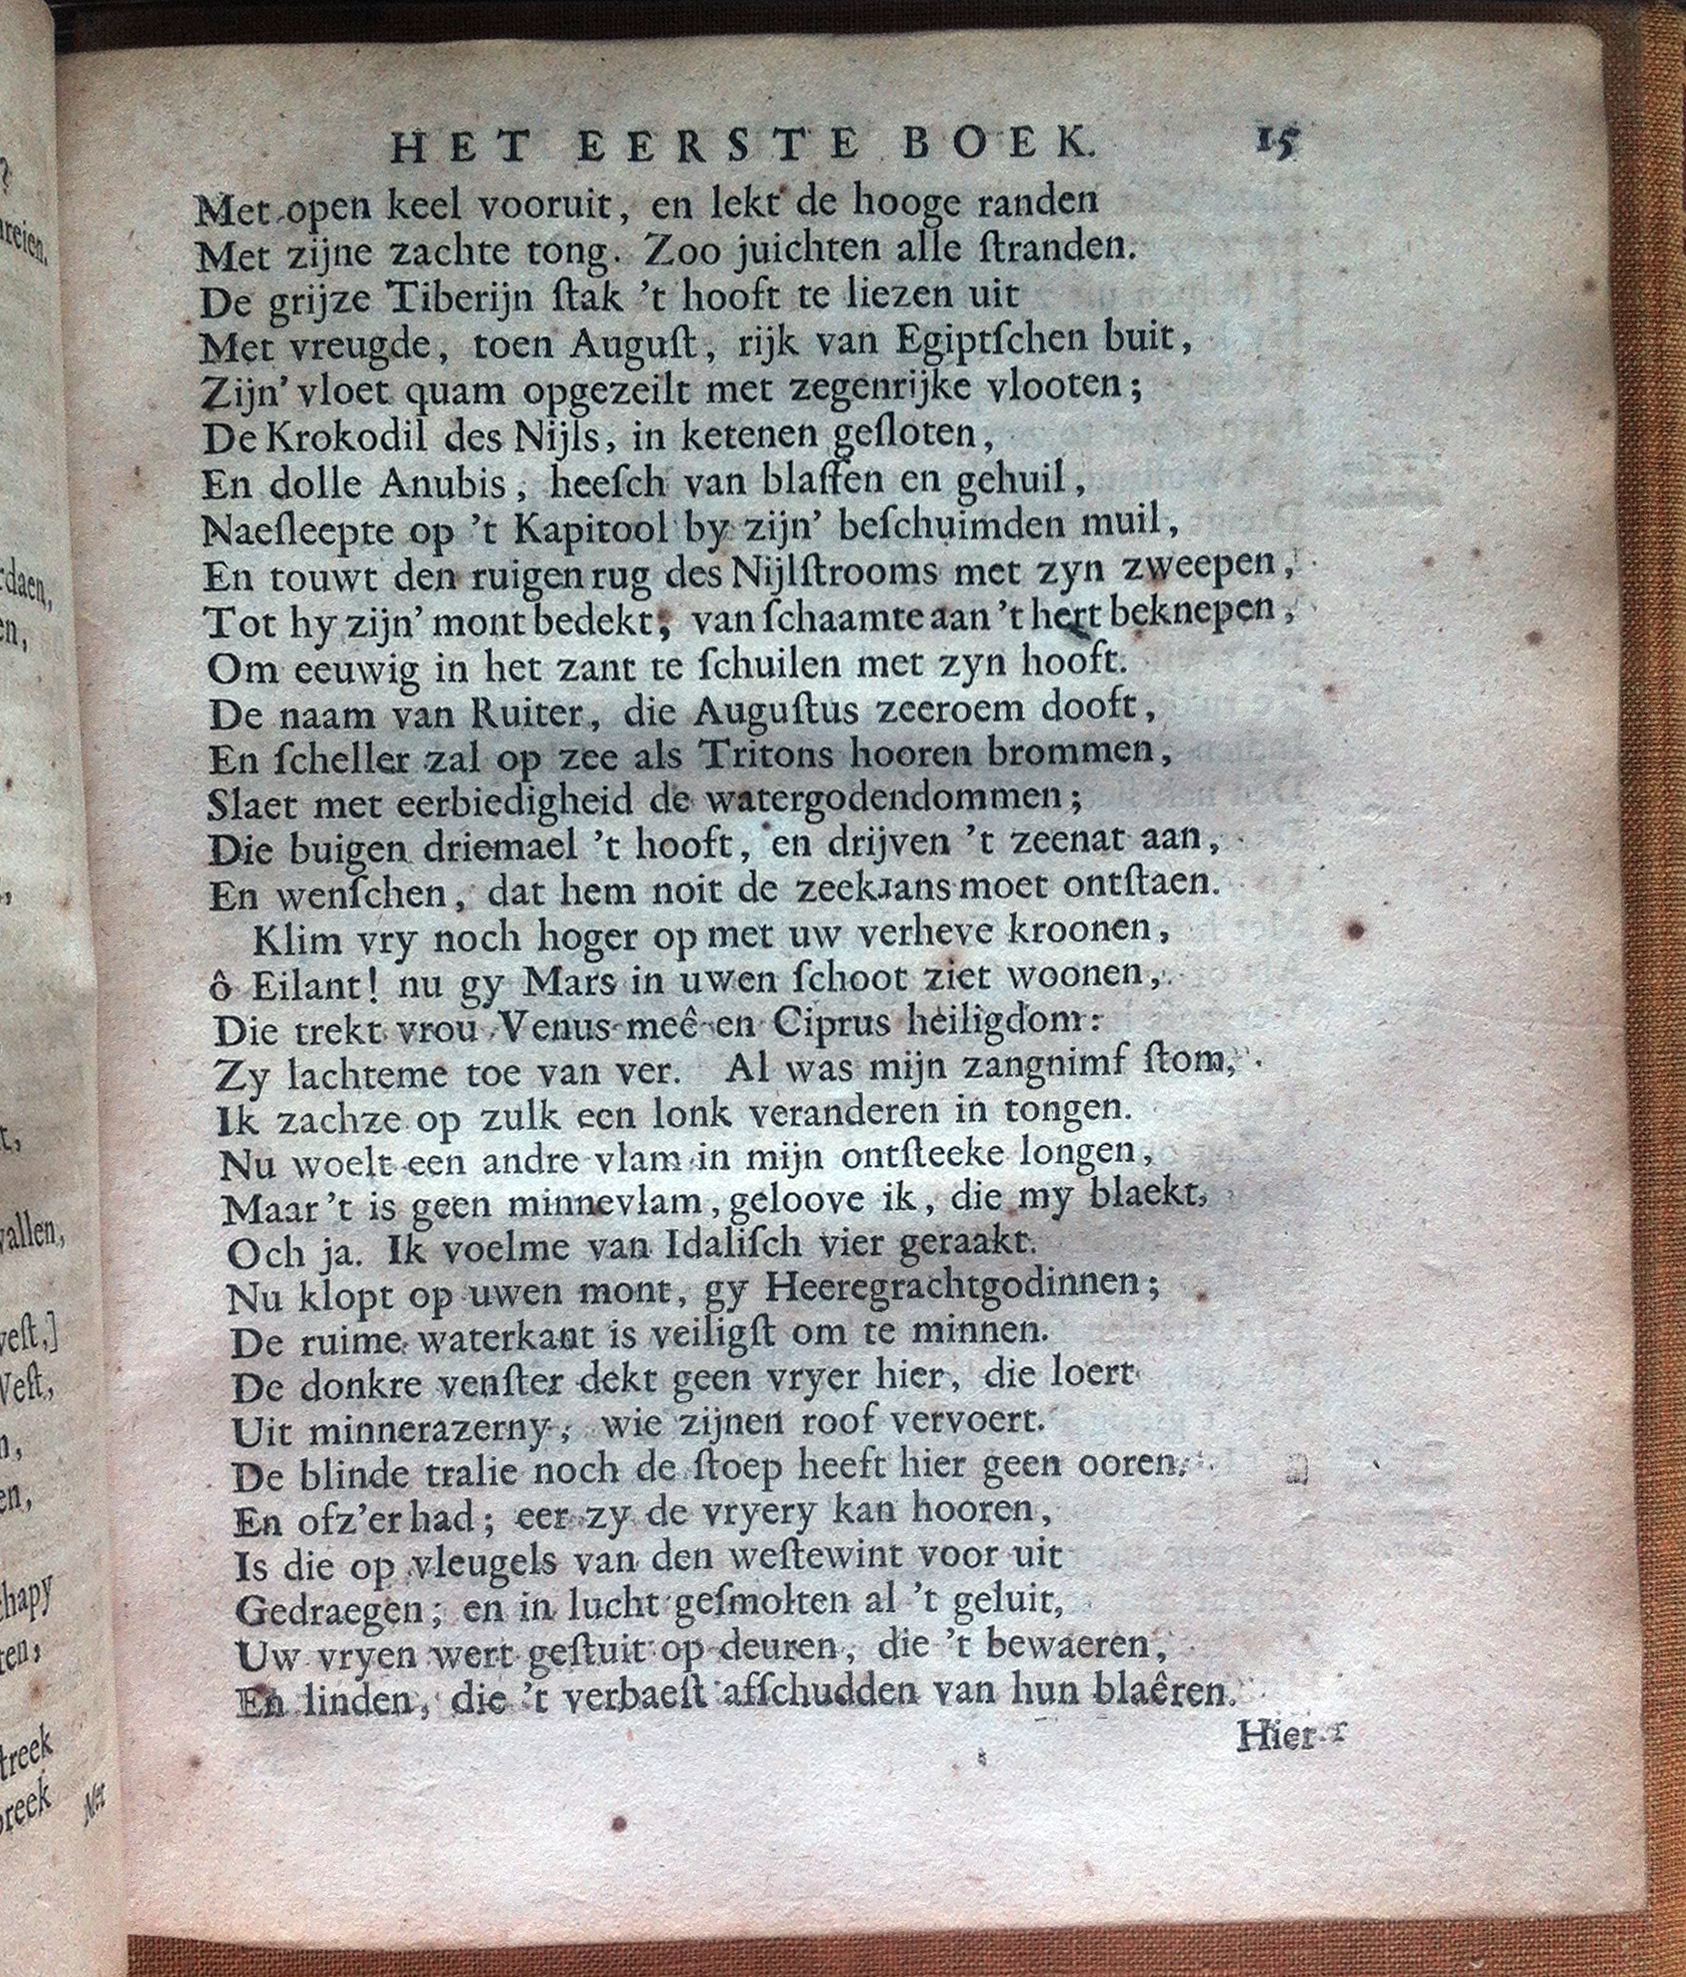 HET EERSTE BOEK. 15
Met open keel vooruit, en lekt de hooge randen
Met zijne zachte tong. Zoo juichten alle ſtranden.
De grijze Tiberijn ſtak 't hooft te liezen uit
Met vreugde, toen Auguſt, rijk van Egiptſchen buit,
Zijn' vloet quam opgezeilt met zegenrijke vlooten;
De Krokodil des Nijls, in ketenen geſloten,
En dolle Anubis, heeſch van blaffen en gehuil,
Naeſleepte op 't Kapitool by zijn' beſchuimden muil,
En touwt den ruigen rug des Nijlſtrooms met zyn zweepen,
Tot hy zijn' mont bedekt, van ſchaamte aan 't hert beknepen,
Om eeuwig in het zant te ſchuilen met zyn hooft.
De naam van Ruiter, die Auguſtus zeeroem dooft,
En ſcheller zal op zee als Tritons hooren brommen,
Slaet met eerbiedigheid de watergodendommen;
Die buigen driemael 't hooft, en drijven 't zeenat aan,
En wenſchen, dat hem noit de zeekans moet ontſtaen.
Klim vry noch hoger op met uw verheve kroonen,
ô Eilant! nu gy Mars in uwen ſchoot ziet woonen,
Die trekt vrou Venus meê en Ciprus heiligdom:
Zy lachteme toe van ver. Al was mijn zangnimf ſtom,
Ik zachze op zulk een lonk veranderen in tongen.
Nu woelt een andre vlam in mijn ontſteeke longen,
Maar 't is geen minnevlam, geloove ik, die my blaekt,
Och ja. Ik voelme van Idaliſch vier geraakt.
Nu klopt op uwen mont, gy Heeregrachtgodinnen;
De ruime waterkant is veiligſt om te minnen.
De donkre venſter dekt geen vryer hier, die loert
Uit minnerazerny, wie zijnen roof vervoert.
De blinde tralie noch de ſtoep heeft hier geen ooren.
En ofz'er had; eer zy de vryery kan hooren,
Is die op vleugels van den weſtewint voor uit
Gedraegen; en in lucht geſmolten al 't geluit,
Uw vryen wert geſtuit op deuren, die 't bewaeren,
En linden, die 't verbaeſt afſchudden van hun blaêren.
Hier